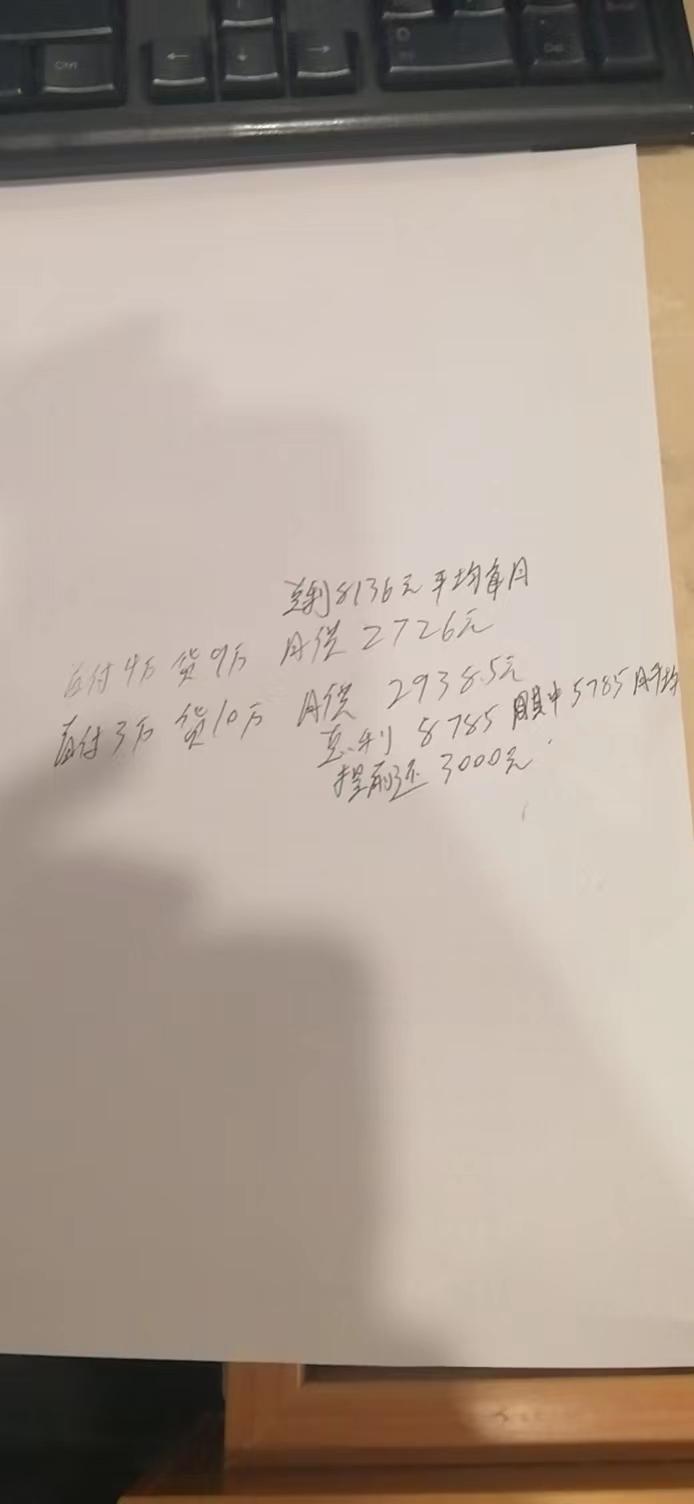 Ctrl
←
↓
→
0
Del
总利8136元 平均每月
首付4万 货9万 月供 2726元
首付3万 货10万 月供 2938.5元
总利 8785 其中5785月平均
提前还 3000元.